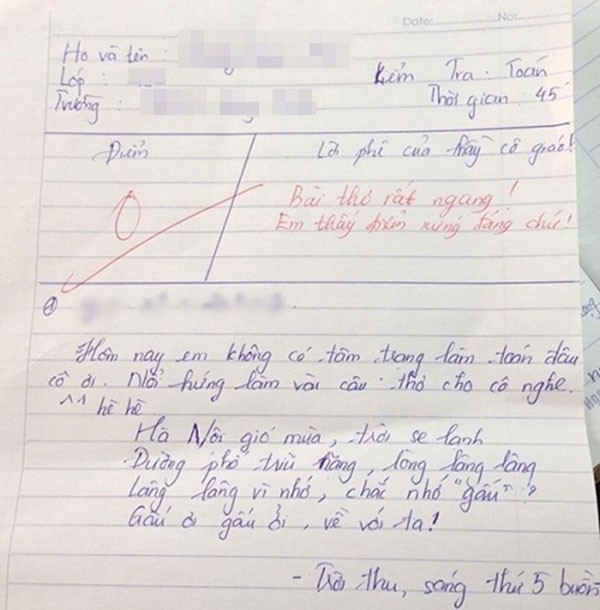 Date: No:
Họ và tên :
Lớp :
Trường :
Kiểm Tra : Toán
Thời gian : 45'
Điểm
Lời phê của thầy cô giáo!
0
Bài thơ rất ngang!
Em thấy điểm xứng đáng chứ!
①
Hôm nay em không có tâm trạng làm toán đâu
cô ơi. Nổi hứng làm vài câu thơ cho cô nghe.
^^ hề hề
Hà Nội gió mùa, trời se lạnh
Đường phố trĩu nặng, lòng lâng lâng
Lâng lâng vì nhớ, chắc nhớ "gấu"?
Gấu ơi gấu ởi, về với ta!
- Trời thu, sáng thứ 5 buồn